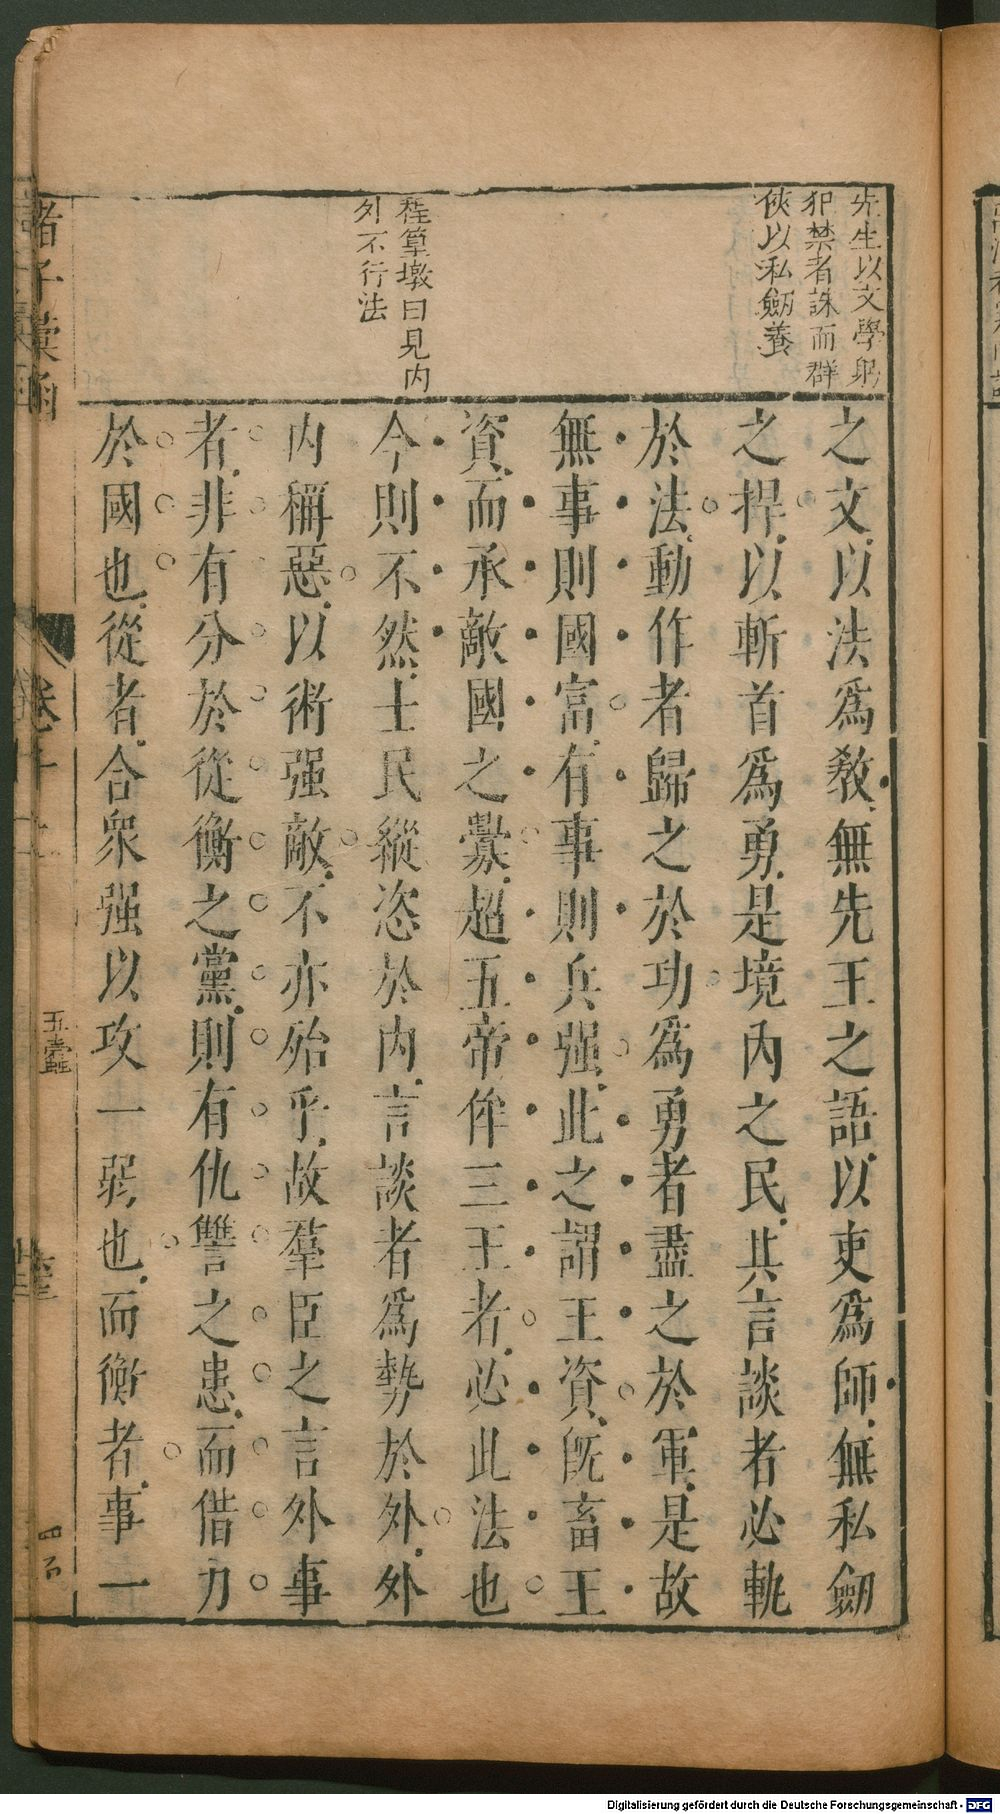 先生以文學躬
犯禁者誅而群
俠以私劒養
程篁墩曰見内
外不行法
之文以法爲敎無先王之語以吏爲師無私劒
之捍以斬首爲勇是境内之民其言談者必軌
於法動作者歸之於功爲勇者盡之於軍是故
無事則國富有事則兵强此之謂王資旣畜王
資而承敵國之釁超五帝侔三王者必此法也
今則不然士民縱恣於内言談者爲勢於外外
内稱惡以術强敵不亦殆乎故羣臣之言外事
者非有分於從衡之黨則有仇讐之患而借力
於國也從者合衆强以攻一弱也而衡者事一
諸子彙函
五蠹
四百
Digitalisierung gefördert durch die Deutsche Forschungsgemeinschaft - DFG